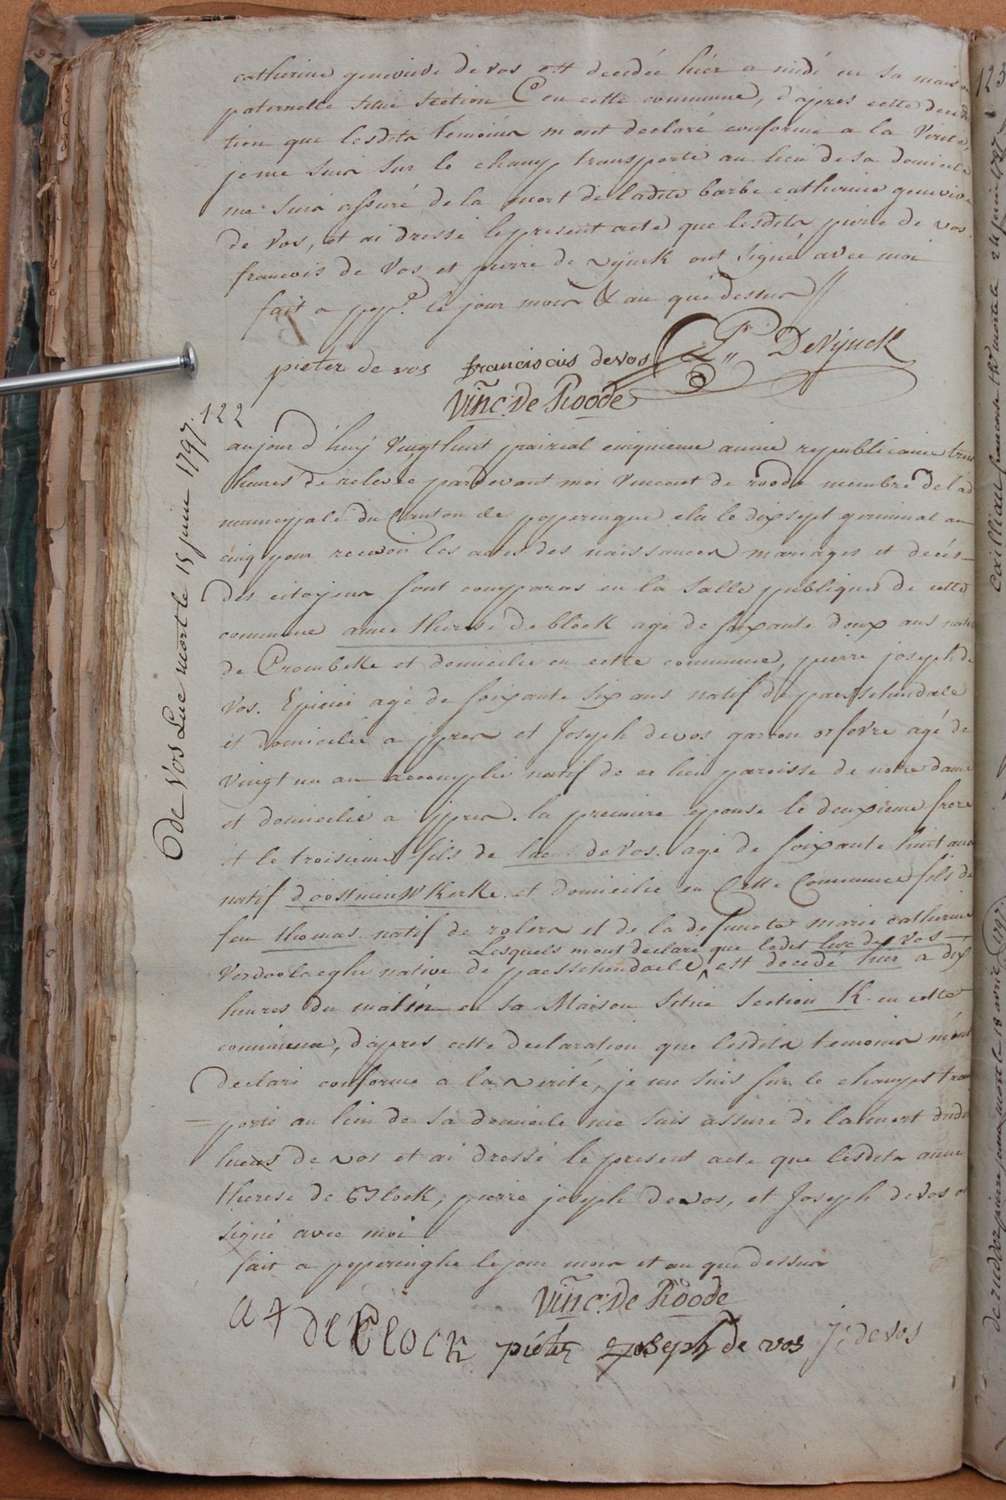 catherine genevieve de vos est decedée hier a midi en sa maison
paternelle situé section C en cette commune, d'apres cette declara
tion que lesdits temoins m'ont declaré conforme a la verité,
je me suis sur le champ transporté au lieu de sa domicile
me suis assuré de la mort de ladite barbe catherine genevive
de Vos, et ai dressé le present acte que lesdits pierre de vos
francois de Vos et pierre de vijnck ont signé avec moi
fait a pop.e le jour mois & an que dessus
pieter de vos franciscus devos P. DeVijnck
Vinc. De Roode
122
aujourd'huy Vingt huit prairial cinquieme année republicaine trois
heures de relevée pardevant moi Vincent de roode membre de lad
municipale du Canton de poperingue elu le dix sept germinal an
cinq pour recevoir les actes des naissances mariages et decès
des citoyens sont comparus en la salle publique de cette
commune anne therese de block agé de soixante deux ans native
de Crombeke et domicilie en cette commune, pierre joseph de
Vos. Epicier agé de soixante six ans natif de passchendale
et domicilié a ypres et Joseph de vos garcon orfevre agé de
Vingt un an accomplie natif de ce lieu paroisse de notre dame
et domicilié a ypres. la premiere epouse le deuxieme frere
et le troisieme fils de luc de Vos. agé de soixante huit ans
natif d'oostnieuwkerke et domicilie en Cette Commune fils de
feu thomas natif de rolers et de la defuncte marie catherine
Lesquels m'ont declaré que ledit luc de vos
native de passchendaele, est decedé hier a dix
heures du matin en sa Maison située section K en cette
commune, d'apres cette declaration que lesdits temoins m'ont
declaré conforme a la verité, je me suis sur le champs trans
porté au lieu de sa domicile me suis assuré de la mort dudit
lucas de vos et ai dressé le present acte que lesdits anne
therese de Block, pierre joseph de vos, et Joseph de Vos on
signé avec moi
fait a poperinghe le jour mois et an que dessus
Vinc. De Roode
a t de block pieter joseph de vos J: de vos
de Vos Luc mort le 15 juin 1797.
123